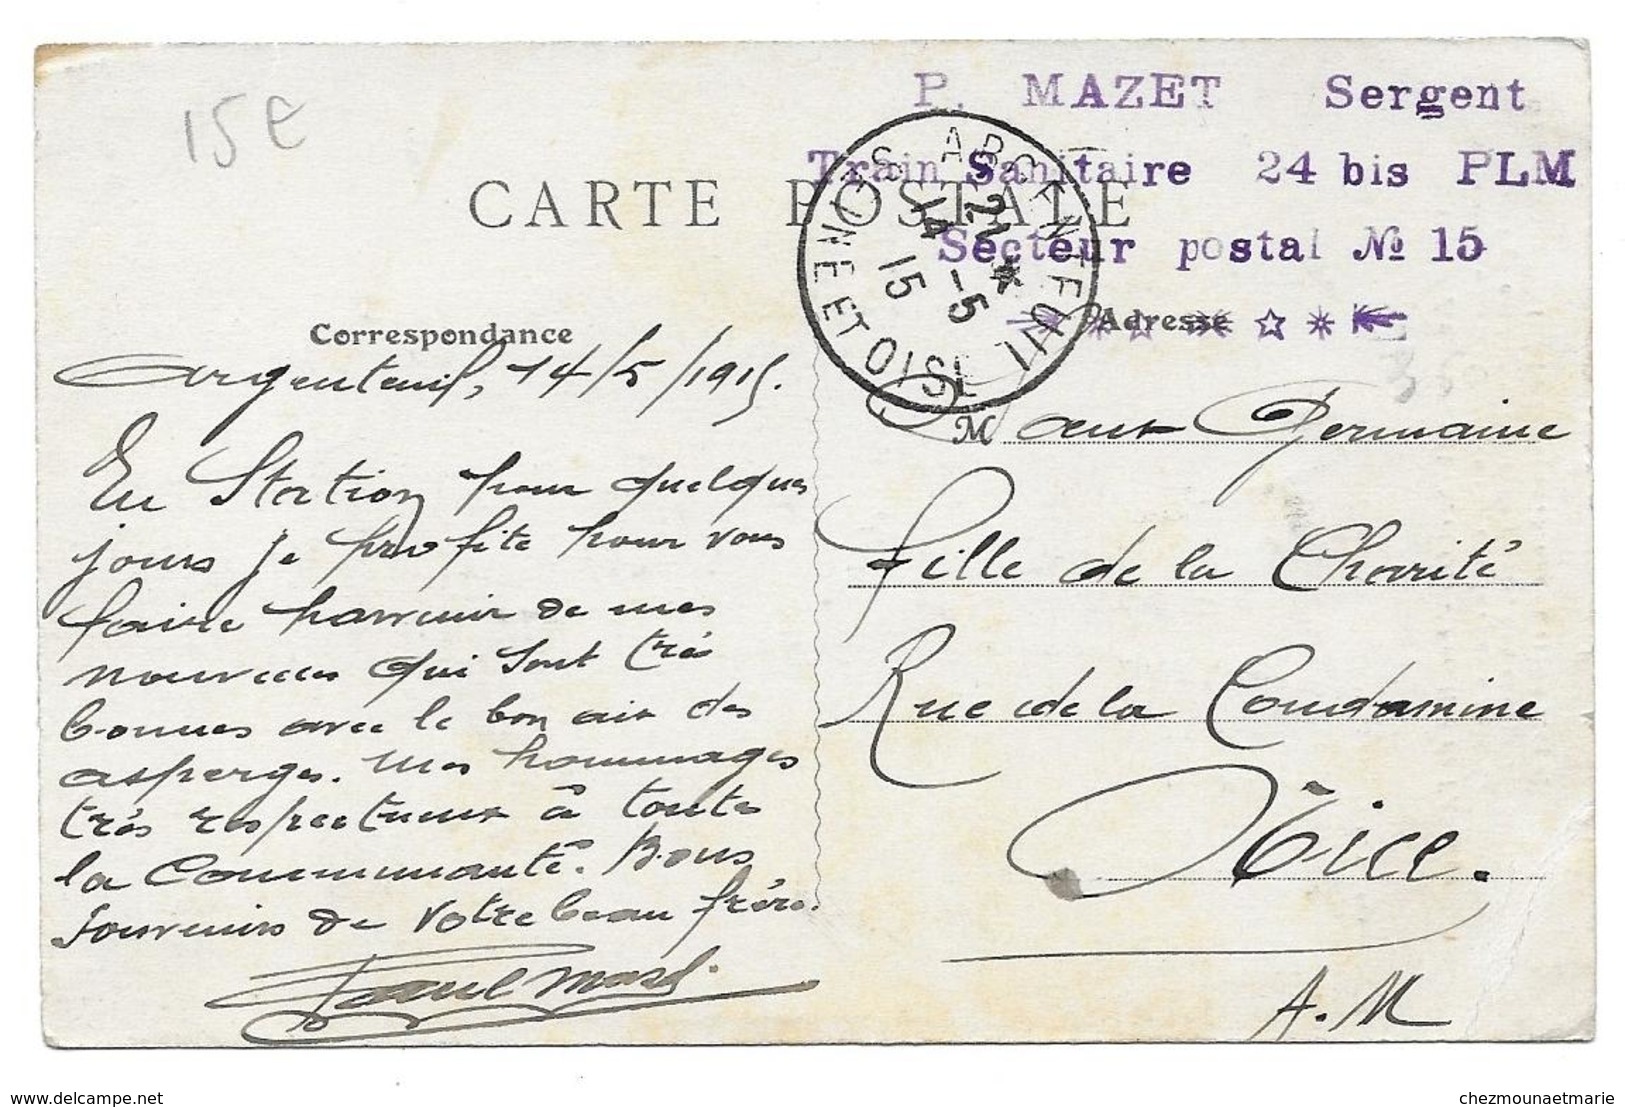 15€
P. MAZET Sergent
Train Sanitaire 24 bis PLM
Secteur postal № 15
CARTE POSTALE
ARGENTEUIL
SEINE ET OISE
21
14 -5
15
Correspondance
Adresse
Argenteuil, 14/5/1915.
En Station pour quelques
jours je profite pour vous
faire parvenir de mes
nouvelles qui sont très
bonnes avec le bon air des
asperges. Mes hommages
très respectueux à toutes
la Communauté. Bons
souvenirs de votre beau frère.
Paul Mazet.
Sœur Germaine
Fille de la Charité
Rue de la Condamine
Nice.
A.M
delcampe.net
chezmounaetmarie